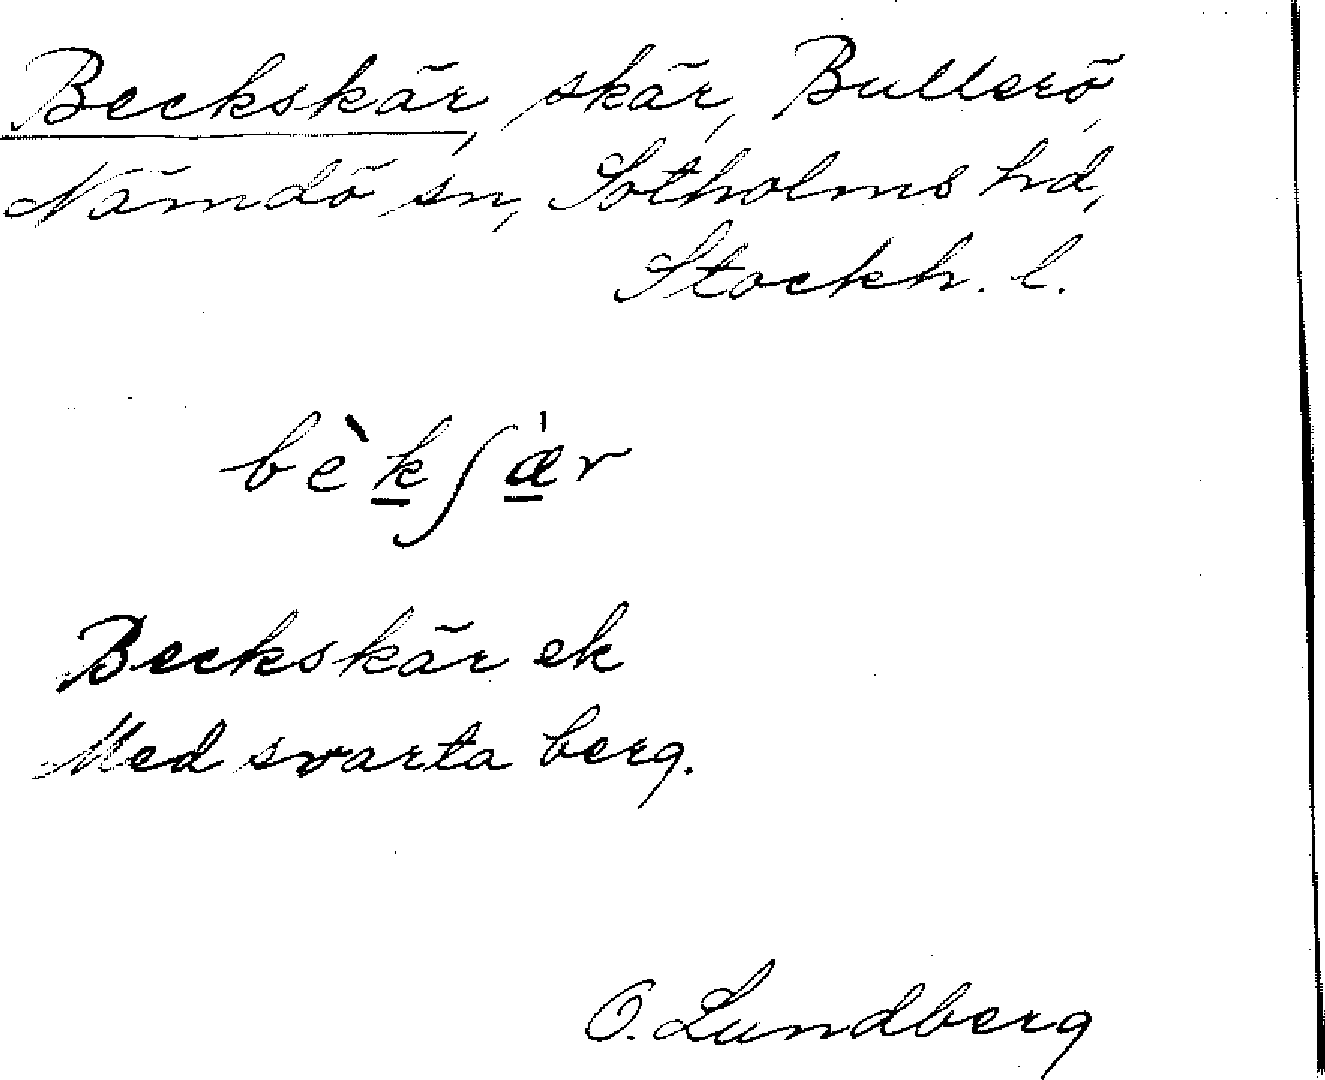 Beckskär, skär, Bullerö,
Nämdö sn, Sotholms hd,
Stockh. l.
bèkʃæ̀r
Beckskär ek
Med svarta berg.
O. Lundberg